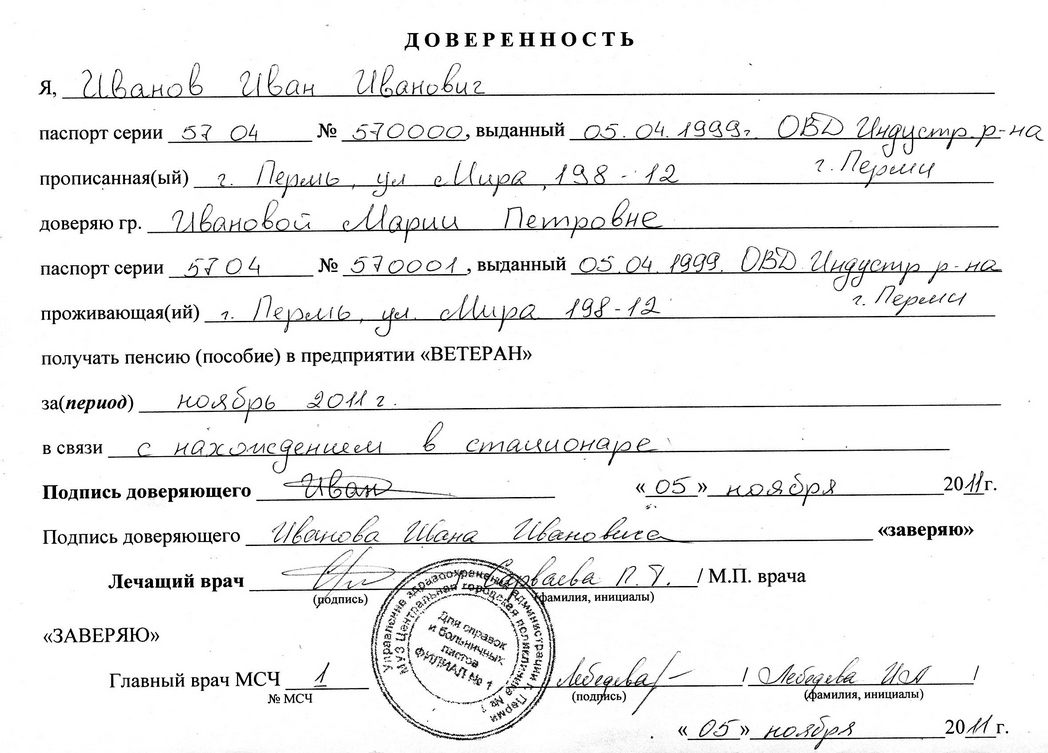 ДОВЕРЕННОСТЬ
Я, Иванов Иван Иванович
паспорт серии 57 04 № 570000, выданный 05.04.1999г. ОВД Индустр. р-на
г. Перми
прописанная(ый) г. Пермь, ул Мира, 198-12
доверяю гр. Ивановой Марии Петровне
паспорт серии 57 04 № 570001, выданный 05.04.1999. ОВД Индустр р-на
г. Перми
проживающая(ий) г. Пермь, ул. Мира 198-12
получать пенсию (пособие) в предприятии «ВЕТЕРАН»
за(период) ноябрь 2011 г.
в связи с нахождением в стационаре
Подпись доверяющего Иван «05» ноября 2011г.
Подпись доверяющего Иванова Ивана Ивановича «заверяю»
Лечащий врач П. Г. / М.П. врача
(подпись) (фамилия, инициалы)
«ЗАВЕРЯЮ»
Главный врач МСЧ 1 Лебедева / Лебедева ИА /
№ МСЧ (подпись) (фамилия, инициалы)
«05» ноября 2011г.
Управление здравоохранения администрации г. Перми
МУЗ Центральная городская поликлиника № 1
Для справок
и больничных
листов
ФИЛИАЛ № 1